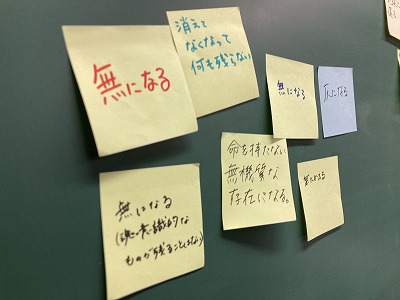 無になる
消えて
なくなって
何も残らない
無になる
灰になる
命を持たない
無機質な
存在になる。
無になる
(魂や意識的な
ものが残ることはない)